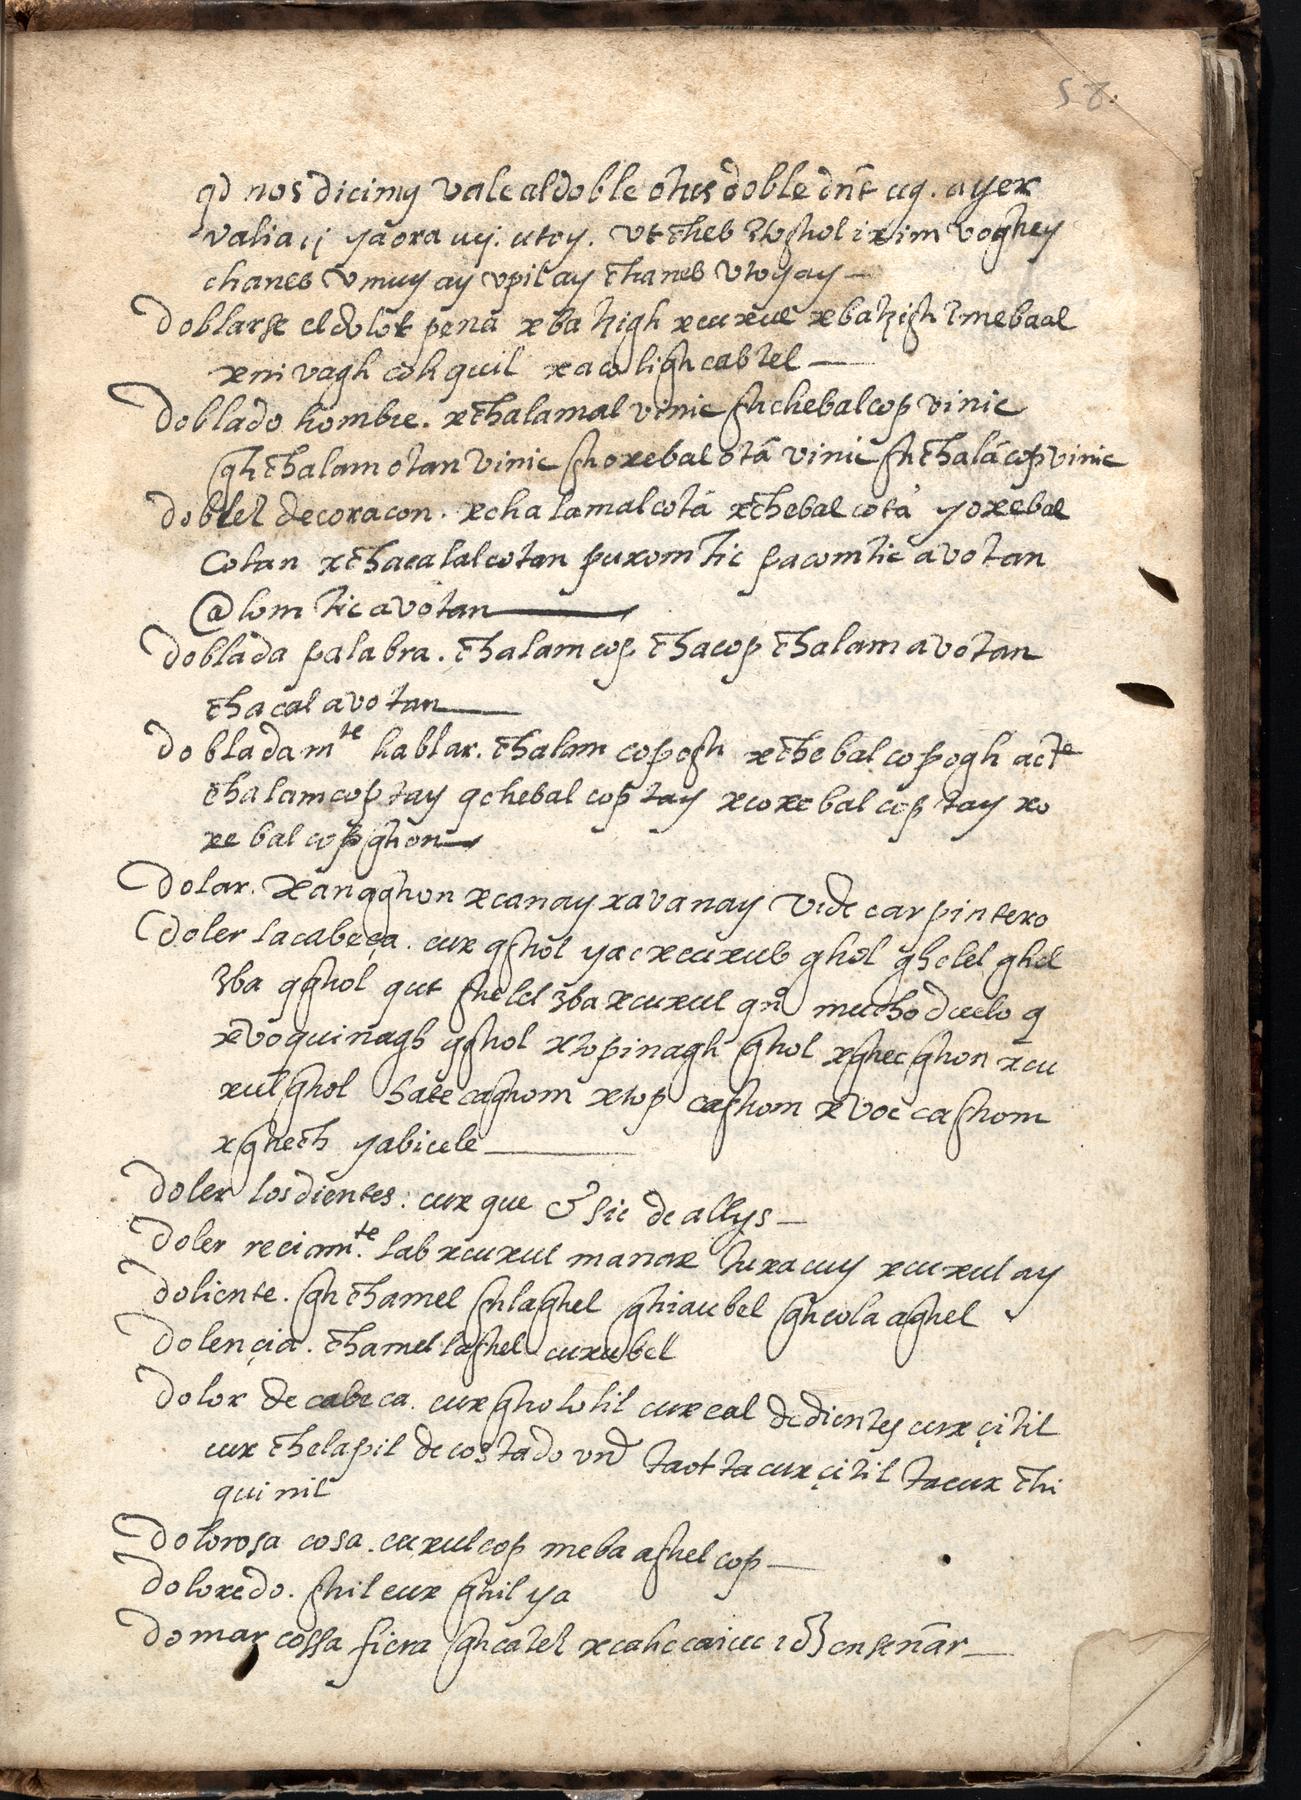 58.
qd nos dicimq vale al doble otus doble dnt uq. ayer
valia ij ya ora uij. utoy. Vt cheb ixim voghey
chaneb v muy ay vpil ay thaneb v toy ay
Doblarse el dolor pena xba xcuxul xba mebaal
xni vagh coh quil xaco ligh cabtel
Doblado hombre. xchalamal vinic ghchebalcop vinic
ghchalam otan vinic ghoxebal otã vinic ghchalãcop vinic
doblez de coracon. xchalamal cotã xchebal cotã yoxebal
Cotan xchacalal cotan puxom tic pacom tic avotan
@ lom tic avotan
doblada palabra. chalam cop chacop chalam avotan
chacal avotan
dobladamte hablar. chalam cop ogh xchebal cop ogh acte
chalam cop tay qchebal cop tay xcoxebal cop tay xo
xebal cop ghon
Dolar. xanqghon xcanay xavanay vide carpintero
Doler la cabeça. cux qghol yac xcuxub ghol ghelel ghel
3ba qghol qut ghelel 3ba xcuxul qnº mucho duelo q
xvoquinagh qghol xtopinagh ghol xghec ghon xcu
xul ghol Sate caghom xtop caghom xvoc caghom
xghech yabicele
doler los dientes: cux que & sic de allys
doler reciamte. lab xcuxul manax tuxacuy xcuxul ay
doliente. ghchamel ghlaghel ghiaubel ghcola aghel
dolençia. chamel laghel cuxubel
Dolor de cabeca. cux gholohil cux eal de dientes cux çitil
cux chelapil de costado vnd taot ta cux çitil tacux chi
quinil
Dolorosa cosa. cuxul cop meba aghel cop
doloredo. ghil cux ghil ya
domar cossa fiera ghcatel xcahcaiuc ensenãr